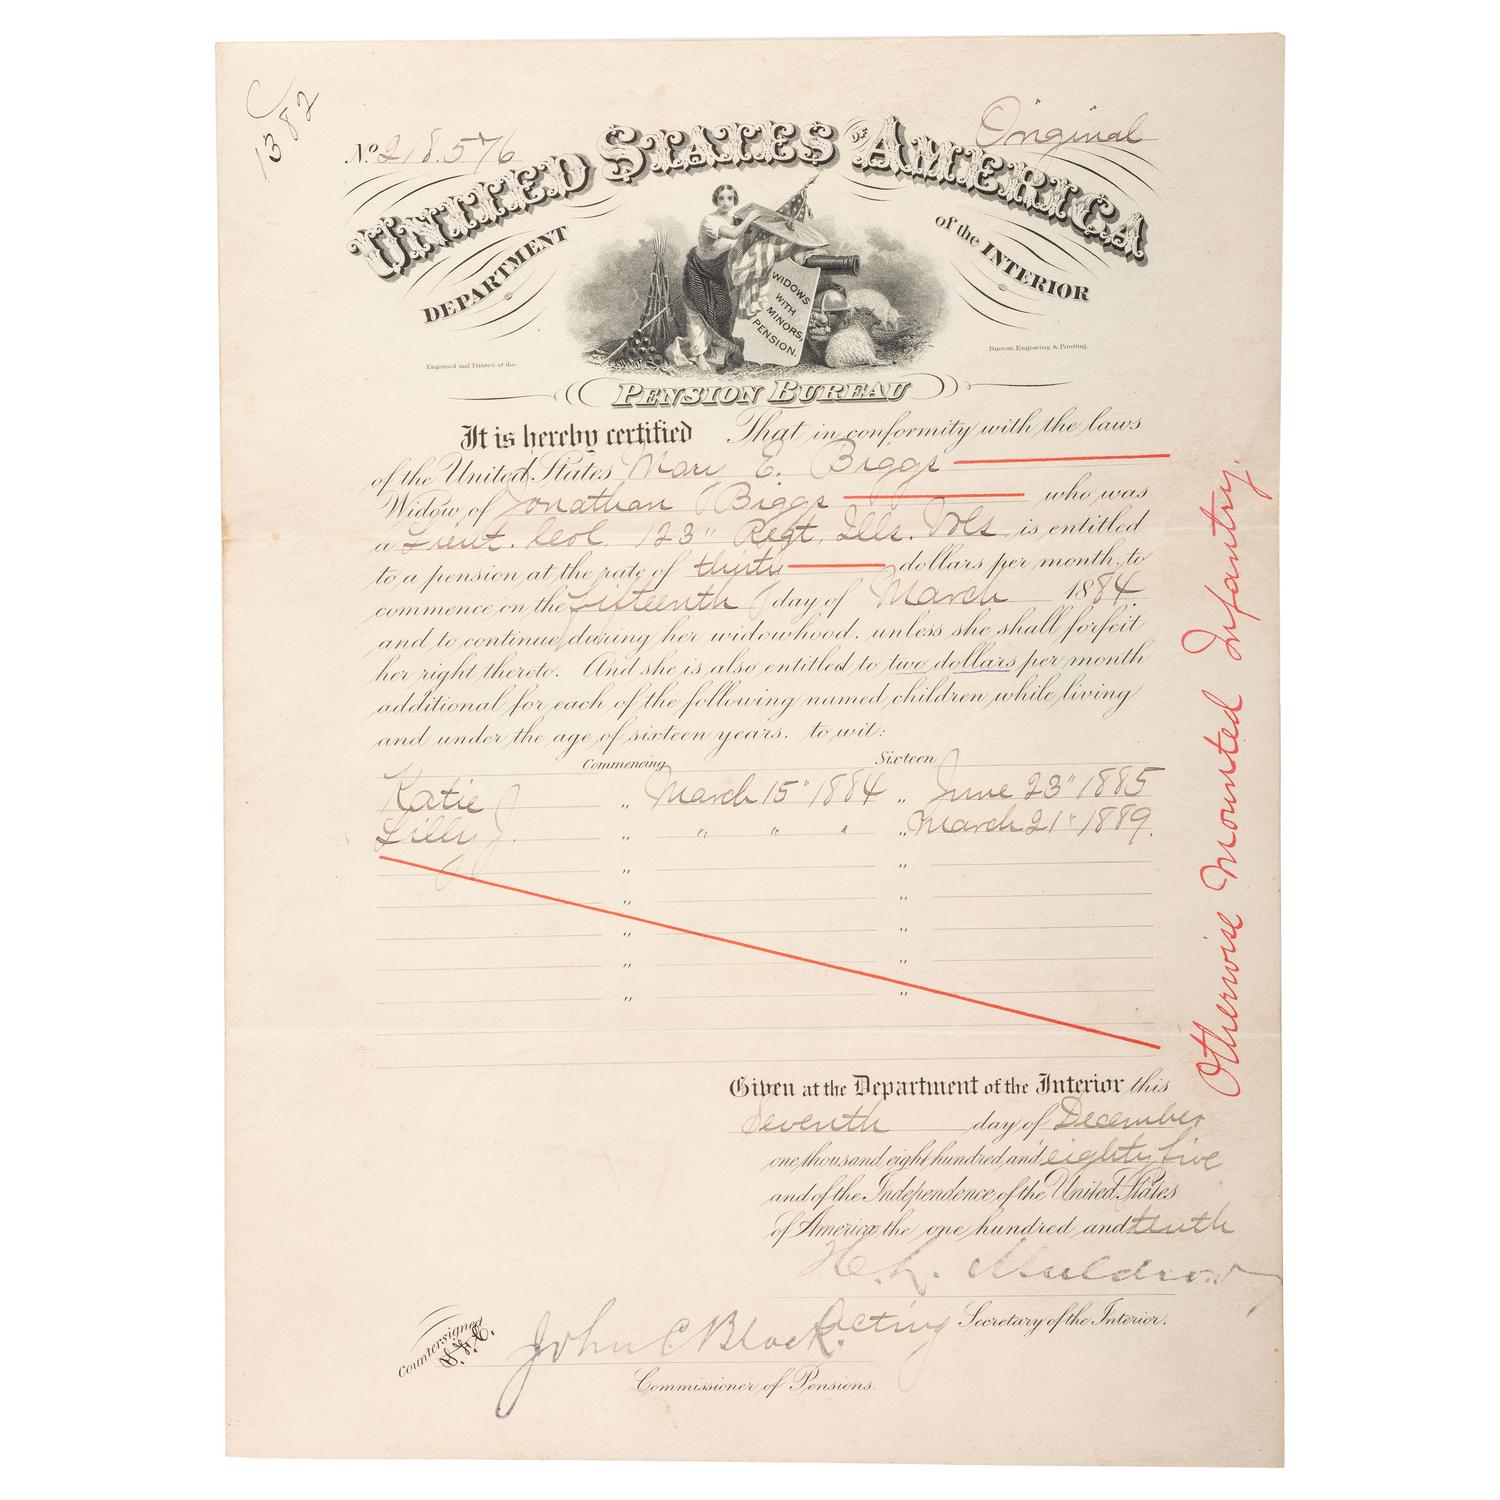 C
1382
No 218.576
Original
UNITED STATES OF AMERICA
DEPARTMENT of the INTERIOR
WIDOWS
WITH
MINORS,
PENSION.
Engraved and Printed at the
Bureau, Engraving & Printing.
PENSION BUREAU
It is hereby certified That in conformity with the laws
of the United States Mary E. Biggs
Widow of Jonathan Biggs who was
a Lieut. Col. 123" Regt. Ills. Vols is entitled
to a pension at the rate of thirty dollars per month, to
commence on the fifteenth day of March 1884.
and to continue during her widowhood. unless she shall forfeit
her right thereto. And she is also entitled to two dollars per month
additional for each of the following named children while living
and under the age of sixteen years. to wit:
Commencing Sixteen
Katie " March 15" 1884 " June 23" 1885
Lilly J. " " " " " March 21" 1889.
" "
" "
" "
" "
" "
Otherwise Mounted Infantry.
Given at the Department of the Interior this
Seventh day of December
one thousand eight hundred and eighty five
and of the Independence of the United States
of America the one hundred and tenth
H. L. Muldrow
Acting Secretary of the Interior.
Countersigned
John C Black.
Commissioner of Pensions.